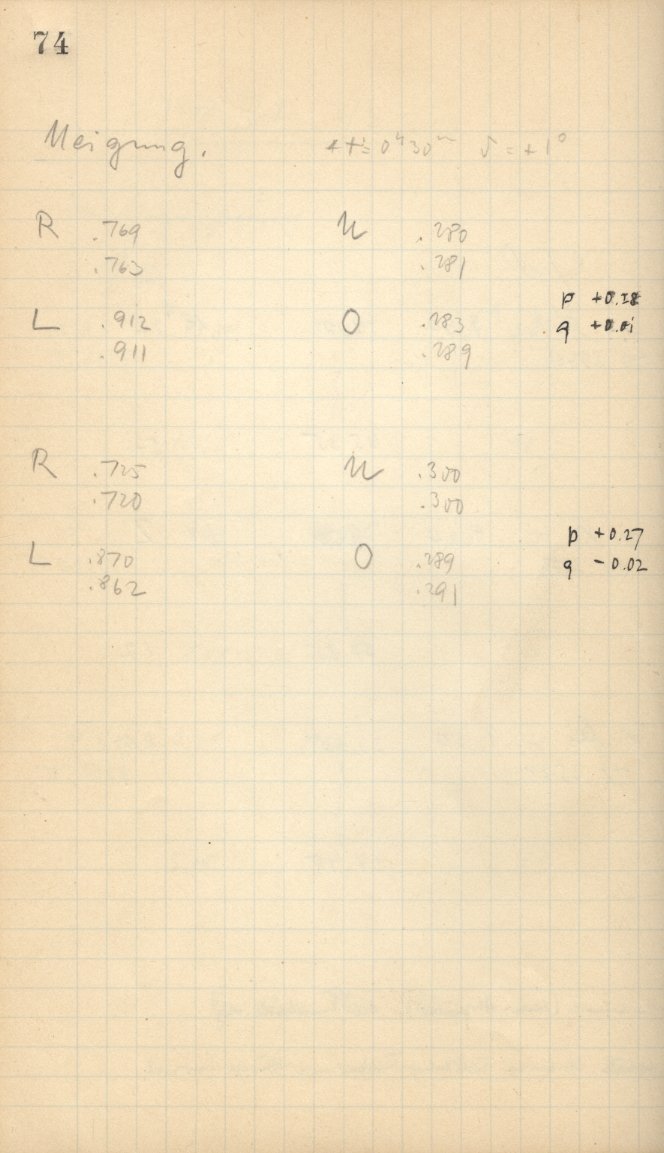 74
Neigung. t = 0h30m δ = +1°
R .769 U .280
.763 .281
p +0.28
L .912 O .283 q +0.01
.911 .289
R .725 U .300
.720 .300
p +0.27
L .870 O .289 q -0.02
.862 .291